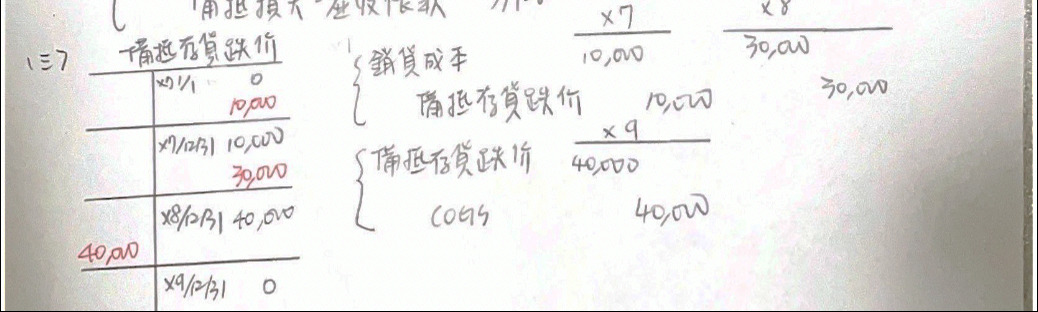 備抵損失-應收帳款
(三) 備抵存貨跌价
x7 1/1 0
10,000
x7/12/31 10,000
30,000
x8/12/31 40,000
40,000
x9/12/31 0
x7 x8
銷貨成本 10,000 30,000
備抵存貨跌价 10,000 30,000
x9
備抵存貨跌价 40,000
COGS 40,000